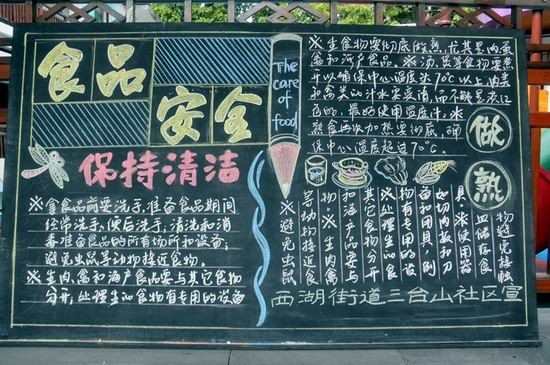 食品
安全
The
care
of
food
保持清洁
※拿食品前要洗手,准备食品期间
经常洗手,便后洗手,清洗和消
毒准备食品的所有场所和设备;
避免虫鼠等动物接近食物。
※生肉,禽和海产食品要与其它食物
分开,处理生的食物有专用的设备
※生食物要彻底做熟,尤其是肉蛋
禽和海产食品。※汤,煲等食物要煮
开以确保中心温度达70℃以上,肉类
和禽类的汁水要变清,而不能是淡红
色的,最好使用温度计,水
熟食再次加热要彻底,确
保中心温度超过70℃。
做
熟
物避免接触
血储存食
具※使用器
如切肉板和刀
备和用具,例
物有专用的设
※处理生的食
其它食物分开
和海产品要与
※生肉禽
物
等动物接近食
※避免虫鼠
西湖街道三台山社区宣